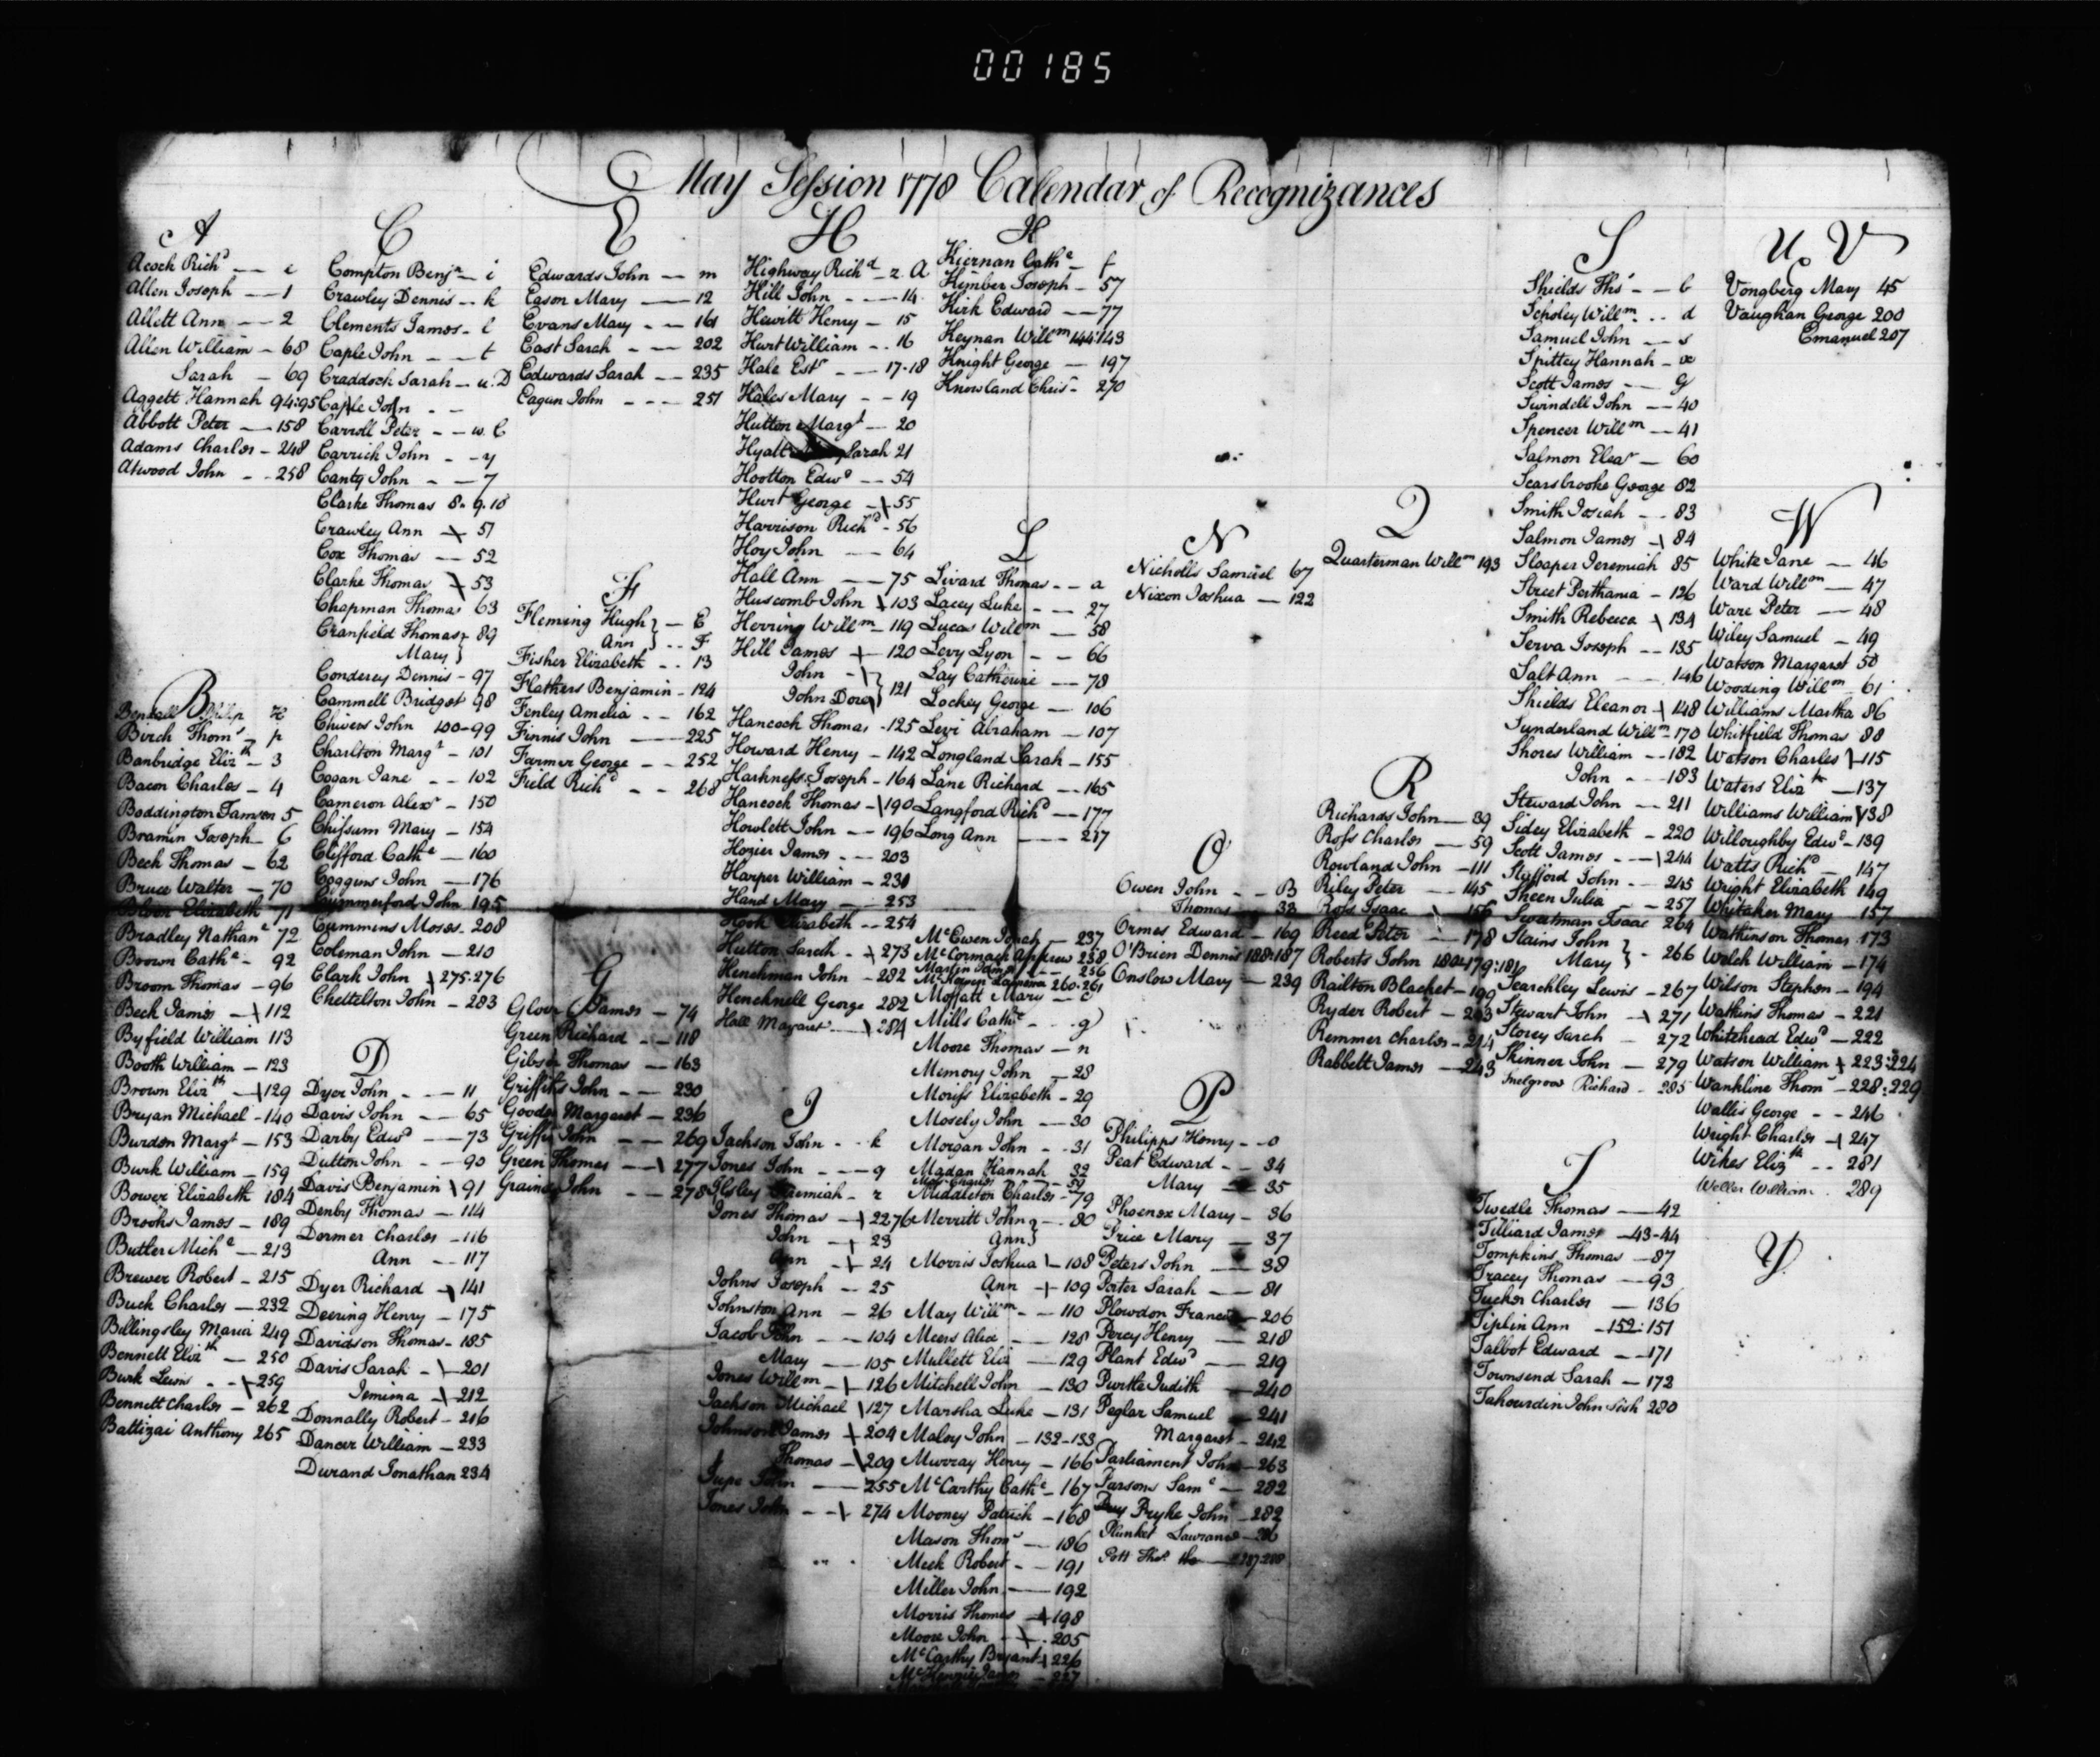 00185
May Session 1778 Calendar of Recognizances
A
Acock Richd — c
Allen Joseph — 1
Allett Ann — 2
Allen William — 68
Sarah — 69
Aggett Hannah 94:95
Abbott Peter — 158
Adams Charles — 248
Atwood John — 258
B
Birch Thoms — p
Banbridge Elizth — 3
Bacon Charles — 4
Boddington Tamson 5
Bramin Joseph — 6
Beck Thomas — 62
Bruce Walter — 70
Bloon Elizabeth 71
Bradley Nathanl 72
Brown Cathe — 92
Broom Thomas — 96
Beck James — 112
Byfield William 113
Booth William — 123
Brown Elizth — 129
Bryan Michael — 140
Burdon Margt — 153
Burk William — 159
Bower Elizabeth 184
Brooks James — 189
Butler Michl — 213
Brewer Robert — 215
Buck Charles — 232
Billingsley Maria 249
Bennett Elizth — 250
Burk Lewis — 259
Bennett Charles — 262
Battizai Anthony 265
C
Compton Benjn — i
Crawley Dennis — k
Clements James — l
Caple John — t
Craddock Sarah — u. D
Caple John —
Carroll Peter — w. C
Carrick John — y
Canty John — 7
Clarke Thomas 8. 9. 10
Crawley Ann — 51
Cox Thomas — 52
Clarke Thomas — 53
Chapman Thomas 63
Cranfield Thomas } 89
Mary }
Conderey Dennis — 97
Cammell Bridget 98
Chivers John 100-99
Charlton Margt — 101
Cogan Jane — 102
Cameron Alexr — 150
Chissum Mary — 154
Clifford Cathe — 160
Coggins John — 176
Cummerford John 195
Cummins Moses — 208
Coleman John — 210
Clark John 275:276
Chettelson John — 283
D
Dyer John — 11
Davis John — 65
Darby Edwd — 73
Dutton John — 90
Davis Benjamin 91
Denby Thomas — 114
Dormer Charles — 116
Ann — 117
Dyer Richard — 141
Deering Henry — 175
Davidson Thomas — 185
Davis Sarah — 201
Jemima — 212
Donnally Robert — 216
Dancer William — 233
Durand Jonathan 234
E
Edwards John — m
Eason Mary — 12
Evans Mary — 161
East Sarah — 202
Edwards Sarah — 235
Eagun John — 251
F
Fleming Hugh } — E
Ann } — F
Fisher Elizabeth — 13
Flathers Benjamin — 124
Fenley Amelia — 162
Finnis John — 225
Farmer George — 252
Field Richd — 268
G
Glover James — 74
Green Richard — 118
Gibson Thomas — 163
Griffiths John — 230
Gooder Margaret — 236
Griffis John — 269
Green Thomas — 277
Grainer John — 278
H
Highway Richd — z. A
Hill John — 14
Hewitt Henry — 15
Hurt William — 16
Hale Estr — 17-18
Hales Mary — 19
Hutton Margt — 20
Hyatt Sarah 21
Hootton Edwd — 54
Hurt George — 55
Harrison Richd — 56
Hoy John — 64
Hall Ann — 75
Huscomb John 103
Herring Willm — 119
Hill James — 120
John }
John Dore } 121
Hancock Thomas — 125
Howard Henry — 142
Harkness Joseph — 164
Hancock Thomas — 190
Howlett John — 196
Hozier James — 203
Harper William — 231
Hand Mary — 253
Hook Elizabeth — 254
Hutton Sarah — 273
Henchman John — 282
Henchnell George 282
Hall Margaret — 284
J
Jackson John — k
Jones John — q
Ilsley Jeremiah — r
Jones Thomas — 22 76
John — 23
Ann — 24
Johns Joseph — 25
Johnston Ann — 26
Jacob John — 104
Mary — 105
Jones Willm — 126
Jackson Michael 127
Johnson James — 204
Thomas — 209
Jupe John — 255
Jones John — 274
K
Kiernan Cathe — f
Kimber Joseph — 57
Kirk Edward — 77
Keynan Willm 144:143
Knight George — 197
Knowland Chrisr — 270
L
Livard Thomas — a
Lacey Luke — 27
Lucas Willm — 58
Levy Lyon — 66
Lay Catherine — 78
Lockey George — 106
Levi Abraham — 107
Longland Sarah — 155
Lane Richard — 165
Langford Richd — 177
Long Ann — 217
McEwen Jonah — 237
McCormack Andrew 238
Martin James — 256
260:261
Moffatt Mary — c
Mills Cathe — g
Moore Thomas — n
Memory John — 28
Moriss Elizabeth — 29
Mosely John — 30
Morgan John — 31
Madan Hannah 32
Middleton Charles — 79
Merritt John } — 80
Ann }
Morris Joshua — 108
Ann — 109
May Willm — 110
Meers Alice — 128
Mullett Eliz — 129
Mitchell John — 130
Marsha Luke — 131
Maloy John — 132-133
Murray Henry — 166
McCarthy Cathe — 167
Mooney Patrick — 168
Mason Thoms — 186
Meek Robert — 191
Miller John — 192
Morris Thomas — 198
Moore John — 205
McCarthy Bryant 226
McKenzie James — 227
N
Nicholls Samuel 67
Nixon Joshua — 122
O
Owen John — B
Thomas — 33
Ormes Edward — 169
O'Brien Dennis 188:187
Onslow Mary — 239
P
Philipps Henry — o
Peat Edward — 34
Mary — 35
Phoenex Mary — 36
Price Mary — 37
Peters John — 38
Porter Sarah — 81
Plowdon Francis — 206
Percy Henry — 218
Plant Edwd — 219
Purtle Judith — 240
Peglar Samuel — 241
Margaret — 242
Parliament John — 263
Parsons Saml — 282
Pryke John — 282
Plunket Lawrance — 286
Pott Thos — 287 288
Q
Quarterman Willm 193
R
Richards John — 39
Ross Charles — 59
Rowland John — 111
Riley Peter — 145
Ross Isaac — 156
Reed Peter — 178
Roberts John 180:179:181
Railton Blachet — 199
Ryder Robert — 203
Remmer Charles — 214
Rabbett James — 243
S
Shields Ths — b
Scholey Willm — d
Samuel John — s
Spittey Hannah — x
Scott James — g
Swindell John — 40
Spencer Willm — 41
Salmon Elear — 60
Scarsbrooke George 82
Smith Josiah — 83
Salmon James — 84
Sloaper Jeremiah 85
Street Perthania — 126
Smith Rebecca — 134
Serva Joseph — 135
Salt Ann — 146
Shields Eleanor — 148
Sunderland Willm — 170
Shores William — 182
John — 183
Steward John — 211
Sidey Elizabeth — 220
Scott James — 244
Stafford John — 245
Sheen Julia — 257
Sweetman Isaac 264
Stains John } — 266
Mary }
Searchley Lewis — 267
Stewart John — 271
Storey Sarah — 272
Skinner John — 279
Snelgrove Richard — 285
T
Twedle Thomas — 42
Tilliard James — 43-44
Tompkins Thomas — 87
Tracey Thomas — 93
Tucker Charles — 136
Tiplin Ann — 152:151
Talbot Edward — 171
Townsend Sarah — 172
Tahourdin John 280
U V
Vongberg Mary 45
Vaughan George 200
Emanuel 207
W
White Jane — 46
Ward Willm — 47
Ware Peter — 48
Wiley Samuel — 49
Watson Margaret 50
Wooding Willm — 61
Williams Martha 86
Whitfield Thomas 88
Watson Charles 115
Waters Elizth — 137
Williams William 138
Willoughby Edwd — 139
Watts Richd — 147
Wright Elizabeth 149
Whitaker Mary — 157
Watkinson Thomas 173
Welch William — 174
Wilson Stephen — 194
Watkins Thomas — 221
Whitehead Edwd — 222
Watson William 223:224
Wankline Thoms — 228:229
Wallis George — 246
Wright Charles — 247
Wikes Elizth — 281
Weller William — 289
Y